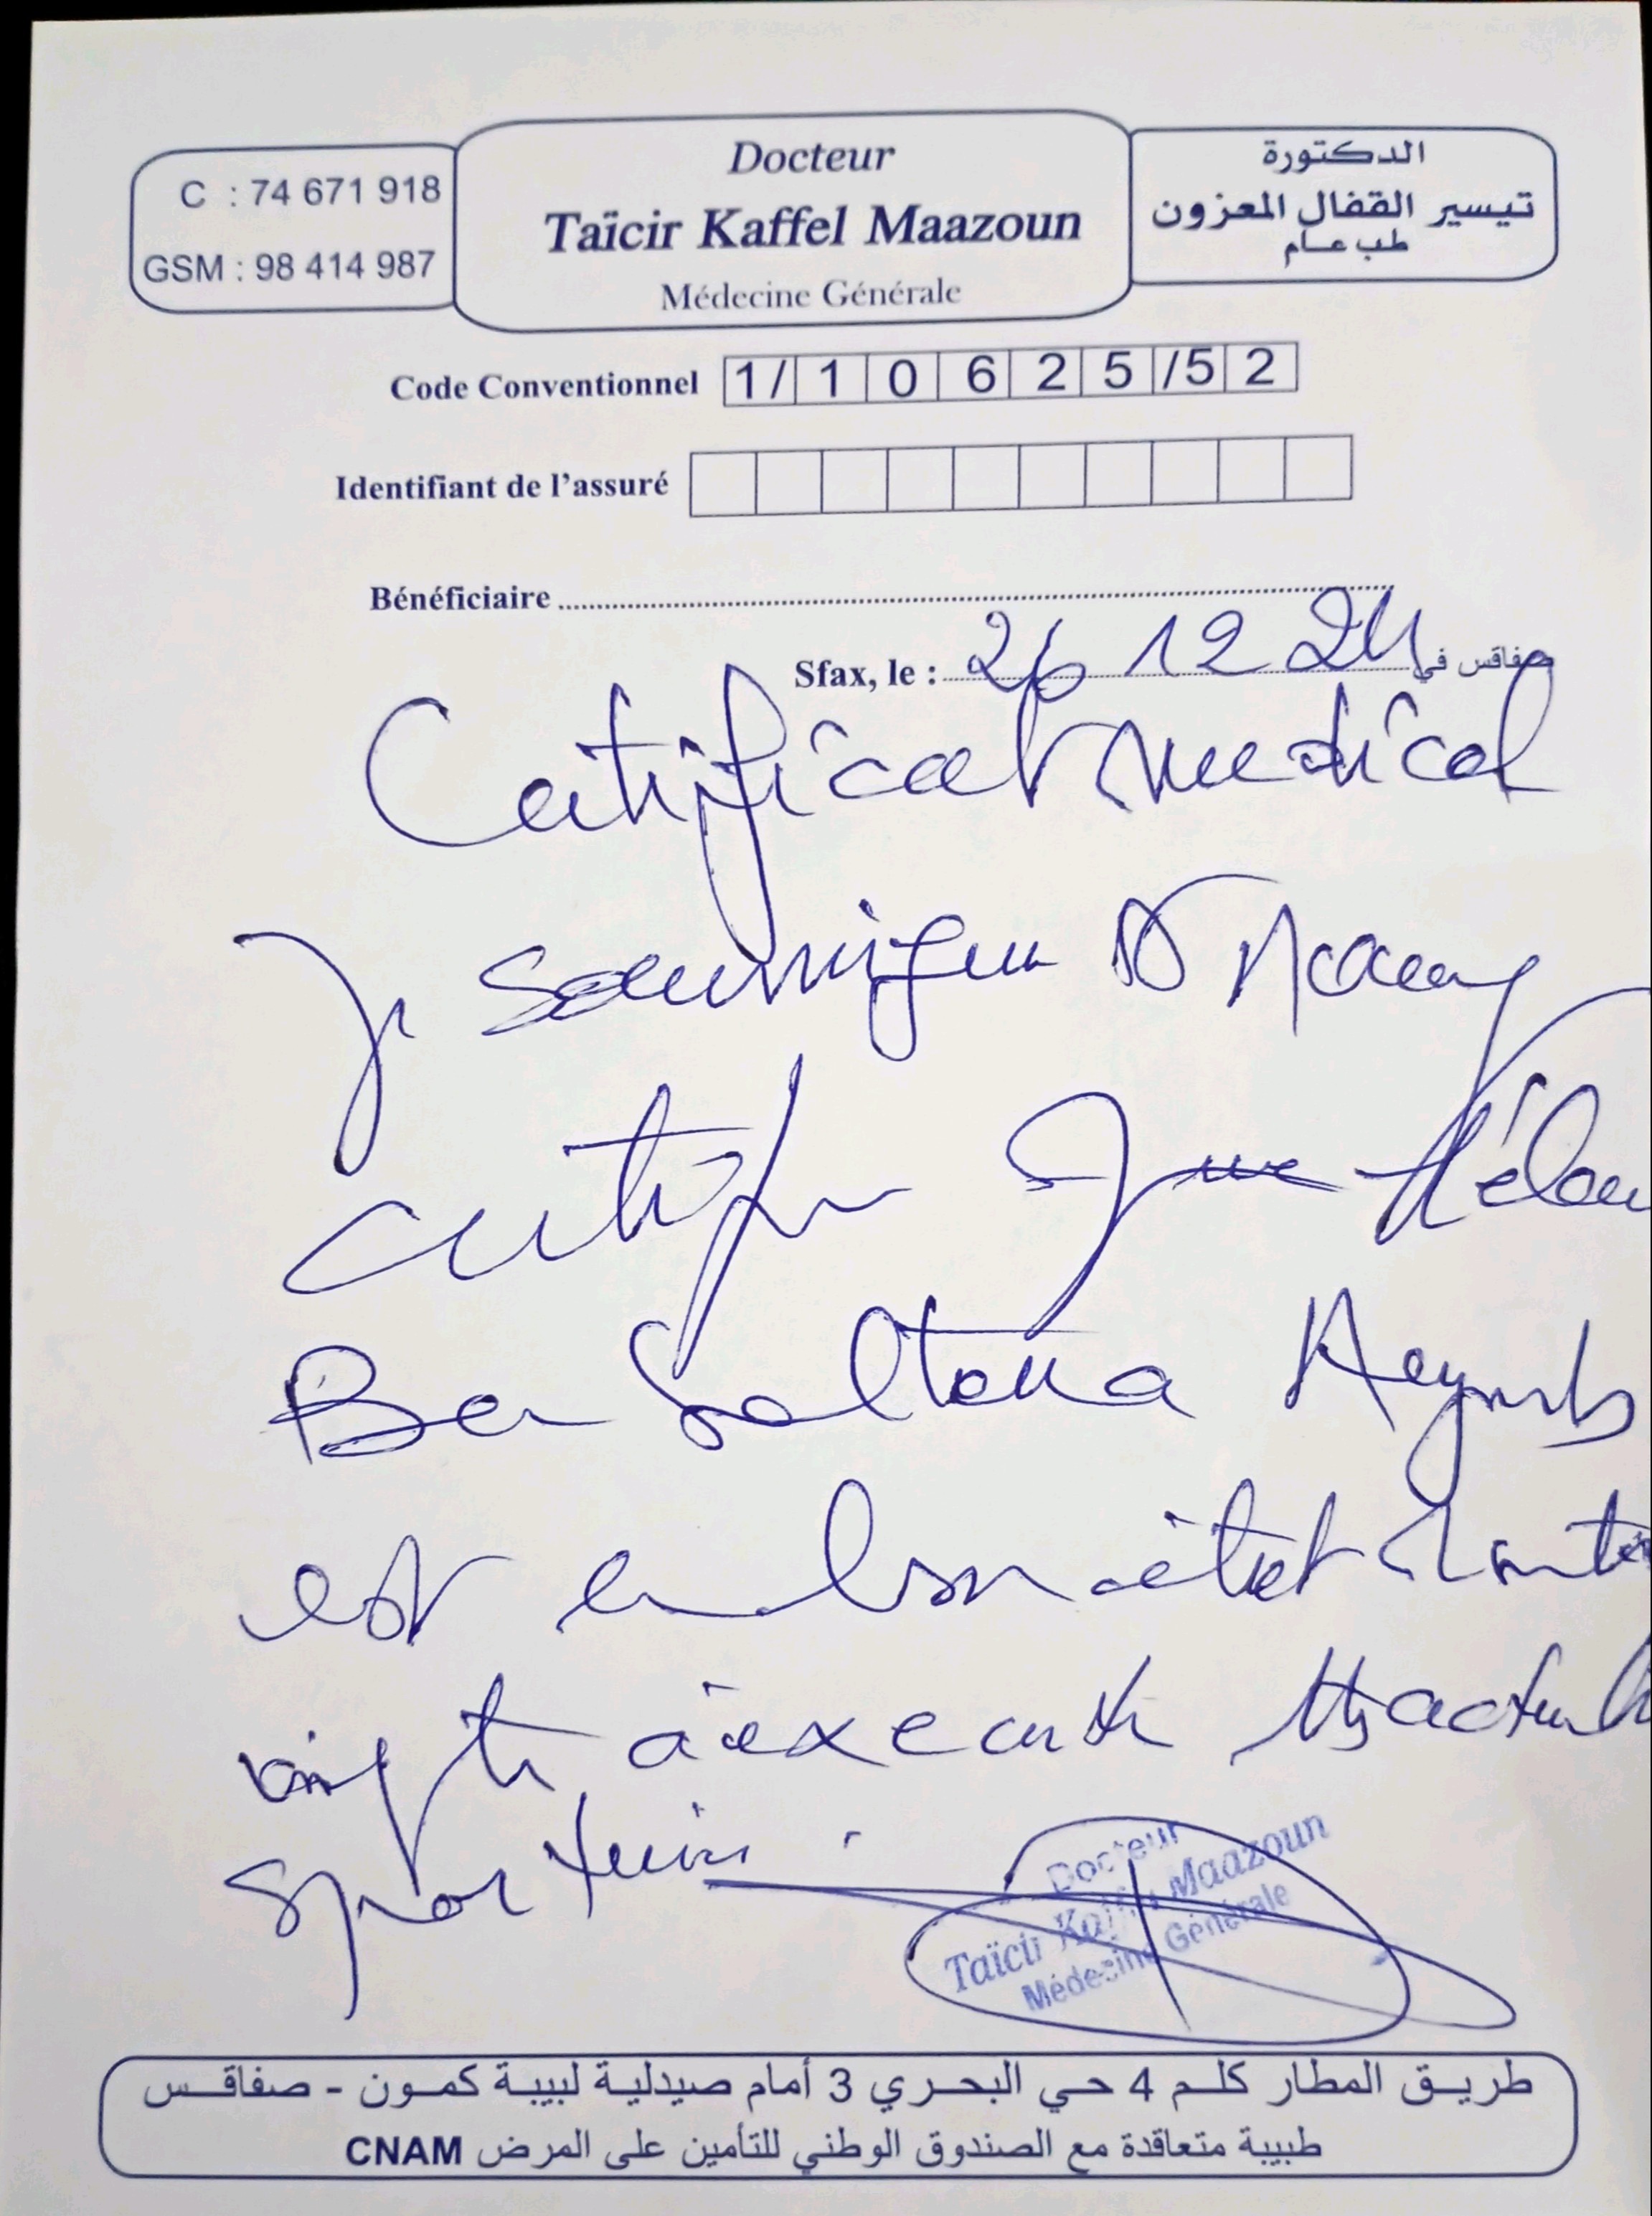 C : 74 671 918
GSM : 98 414 987
Docteur
Taïcir Kaffel Maazoun
Médecine Générale
الدكتورة
تيسير القفال المعزون
طب عام
Code Conventionnel 1/10625/52
Identifiant de l'assuré
Bénéficiaire
Sfax, le : 26 12 24 صفاقس في
Certificat medical
Je soussigné Dr
certifie que
Ben Soltana
est en bon état
à executer
sportives.
Docteur
Taïcir Kaffel Maazoun
Médecine Générale
طريق المطار كلم 4 حي البحري 3 أمام صيدلية لبيبة كمون - صفاقس
طبيبة متعاقدة مع الصندوق الوطني للتأمين على المرض CNAM